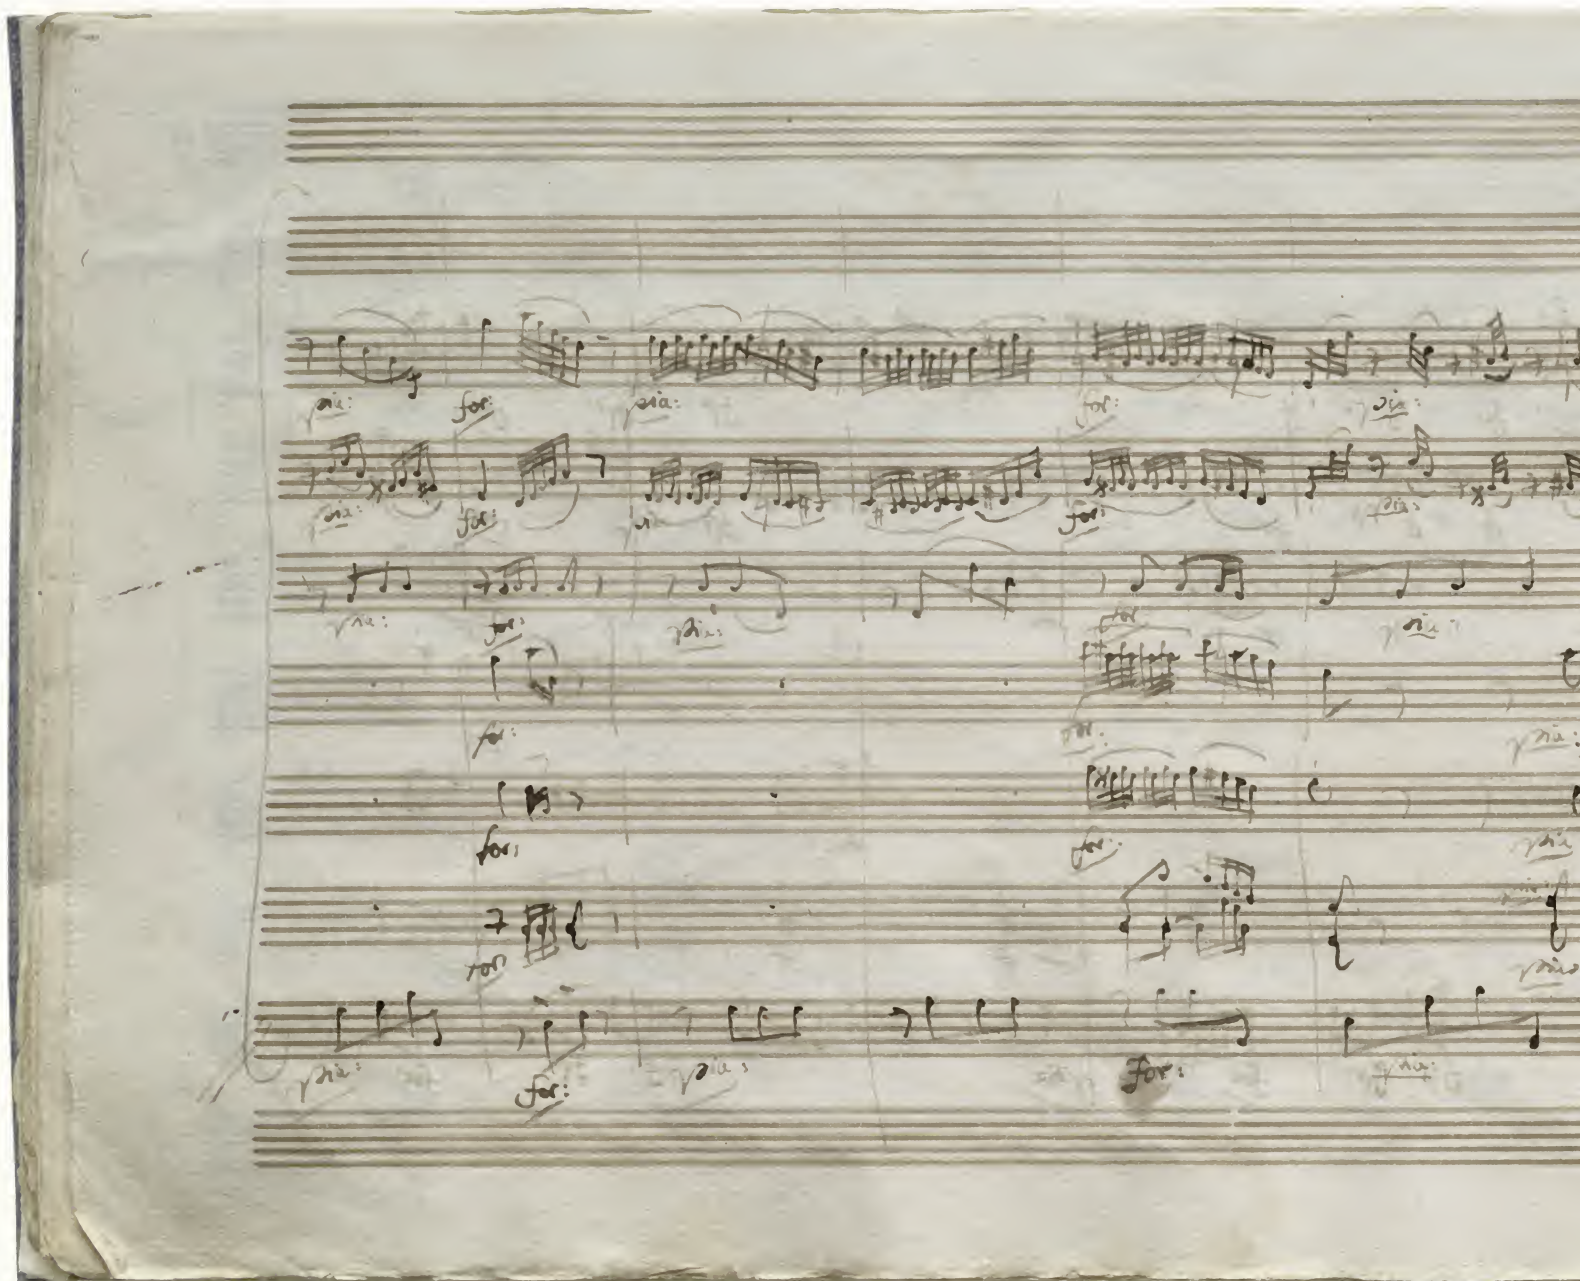 pia: for: pia: for: pia:
pia: for: for: pia:
pia: for: pia: for: pia:
for: for: pia:
for: for: pia
for: pia:
pia: for: pia: for: pia: